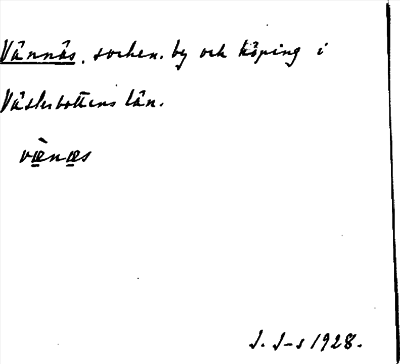 Vännäs, socken, by och köping i
Västerbottens län.
væ̀næs
J. J-s 1928.